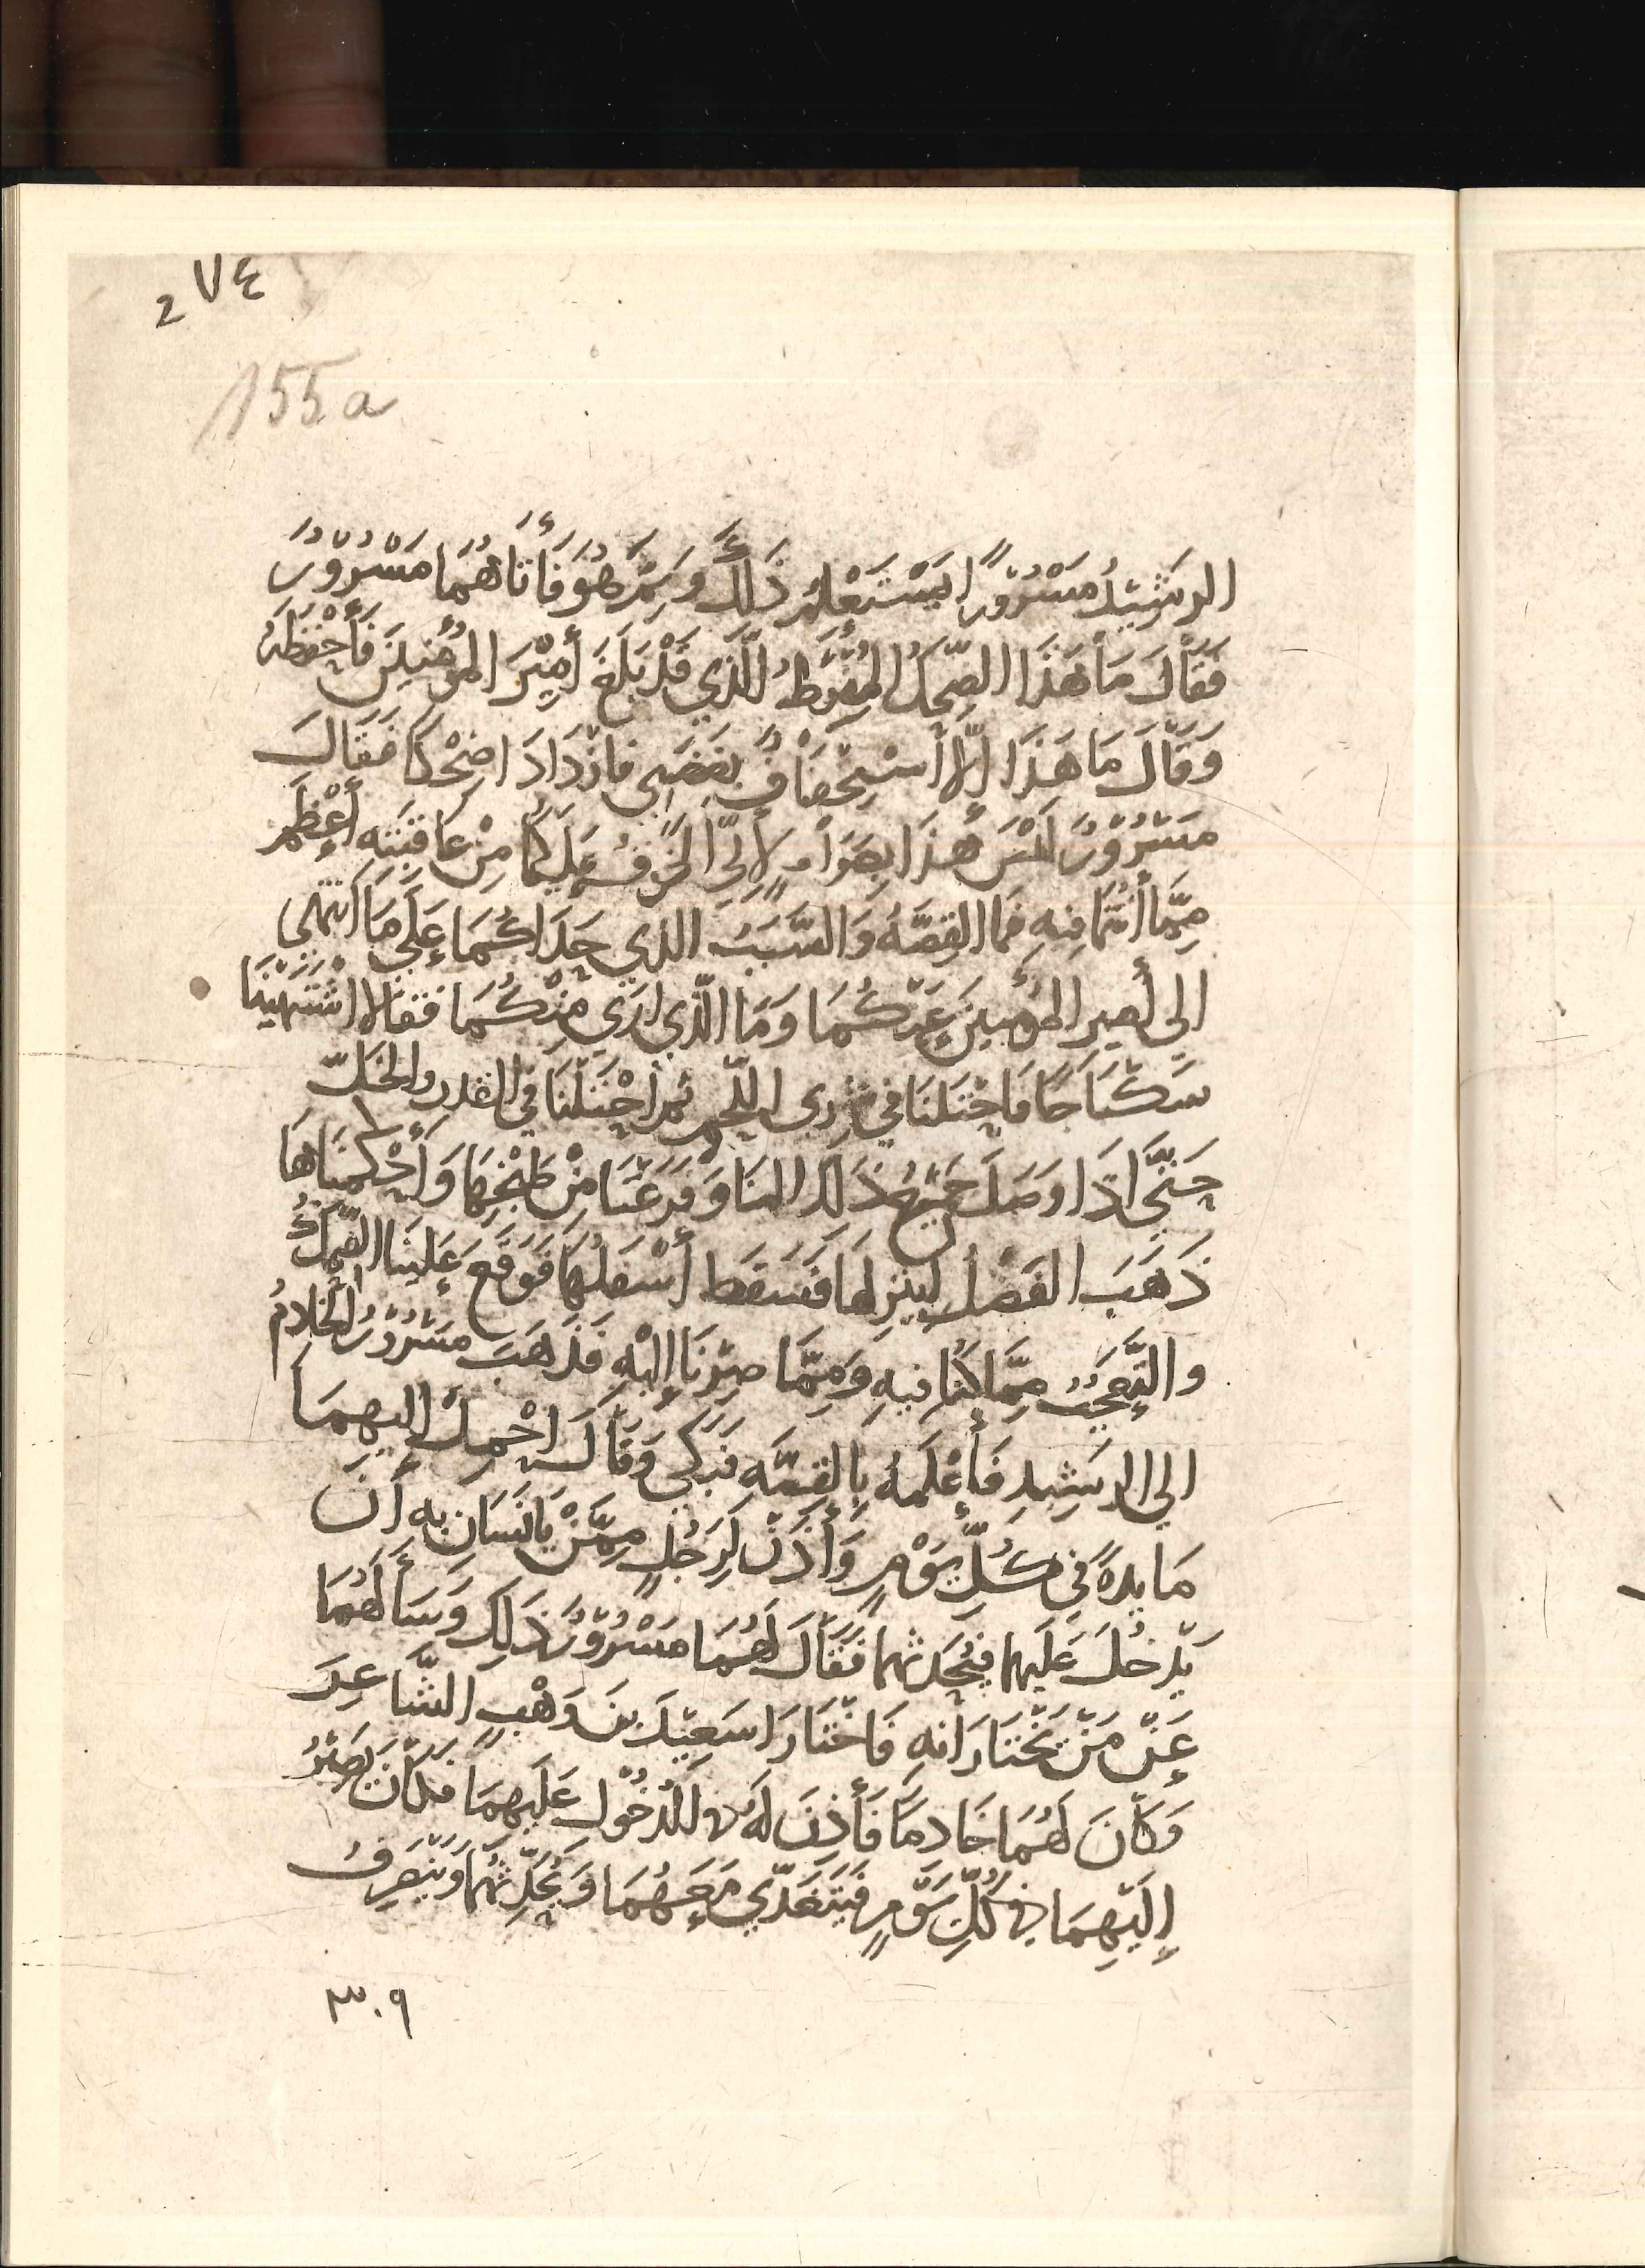 ٢٧٤
155a
الرشِيْدُ مَسْرُوْرًا يَسْتَعْلِمُ ذَلِكَ وَيِمَّ هُوَ فَأَتَاهُمَا مَسْرُوْرُ
فَقَالَ مَا هَذَا الضِّحْكُ المُفْرِطُ الَّذِي قَدْ بَلَغَ أَمِيْرَ المُؤْمِنِيْنَ فَأَحْفَظَهُ
وَقَالَ مَا هَذَا إلَّا اسْتِخْفَافٌ بِغَضَبِي فازْدَادَ اضِحْكًا فَقَالَ
مَسْرُوْرٌ لَيْسَ هَذَا بِصَوَابٍ لِإِنِّي الخَوْفُ عَلَيْكُمَا مِنْ عَاقِبَتِهِ أَعْظَمَ
مِمَّا أَنْتُمَا فِيهِ فَمَا القِصَّةُ وَالسَّبَبُ الذي حَدَاكُمَا عَلَى مَا انتهى
إلى أمير المُؤْمِنِينَ عَنْكُمَا وَمَا الَّذِي أرَى مِنْكُمَا فَقَالَا اشْتَهَيْنَا
سَكْبَاجًا فَاحْتَلْنَا فِي شِرِى اللَّحْمِ ثم احْتَلْنَا فِي القدر والخَلّ
حَتَّى اذَا وَصَلَ جَمِيْعُ ذَلِكَ الينَا وَفَرَغْنَا مِنْ طَبْخِهَا وَأَحْكَمْنَاهَا
ذَهَبَ الفَضْلُ لينزلهَا فَسَقَطَ أَسْفَلُهَا فَوَقَعَ عَلَيْنَا الضِّحْكُ
والتَّعَجُّبُ مِمَّا كُنَّا فِيهِ وَمِمَّا صِرْنَا إِلَيْهِ فَذَهَبَ مَسْرُوْرُ الخَادِمُ
الي الرشِيدِ فَأَعْلَمَهُ بِالقِصَّهِ فَبَكَى وَقَالَ احْمِلْ إليهِمَا
مَايدةً فِي كُلِّ يَوْمٍ وَأْذَنْ لِرَجُلٍ مِمَّنْ يَانَسَانِ بِهِ أَنْ
يَدْخُلَ عَلَيهما فيُحَدثهما فَقَالَ لَهُمَا مَسْرُوْرٌ ذَلِكَ وَسَأَلَهُمَا
عَنْ مَنْ يَخْتَارَانِهِ فَاخْتَارَا سَعِيْدَ بنَ وَهْبٍ الشَّاعِرَ
وَكَانَ لَهُمَا خَادِمًا فَأَذِنَ لَهُ في الدُخُوْلِ عَلَيهِمَا فَكَانَ يَصِيْرُ
إِلَيْهِمَا في كُلِّ يَوْمٍ فَيَتَغَدَّي مَعَهُمَا وَيُحَدِّثُهُمَا وَيَنْصَرِفُ
٣٠٩